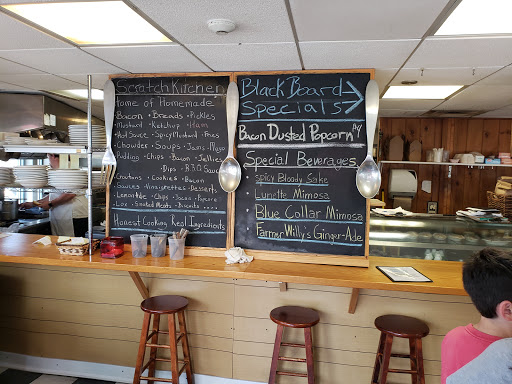 Scratch Kitchen
Home of Homemade
Bacon • Breads • Pickles
• Mustard • Ketchup • Ham
• Hot Sauce • Spicy Mustard • Fries
• Chowder • Soups • Jams • Mayo
Pudding • Chips • Bacon • Jellies
• Dips • B.B.Q Sauce
• Croutons • Cookies • Bacon
Sauces • Vinaigrettes • Desserts
• Lemonade • Chips • Bacon • Popcorn
• Lox • Smoked Meats • Biscuits
Honest Cooking Real Ingredients
Black Board
Specials
Bacon Dusted Popcorn
Special Beverages
• Spicy Bloody Sake
• Lunette Mimosa
• Blue Collar Mimosa
• Farmer Willy's Ginger-Ade